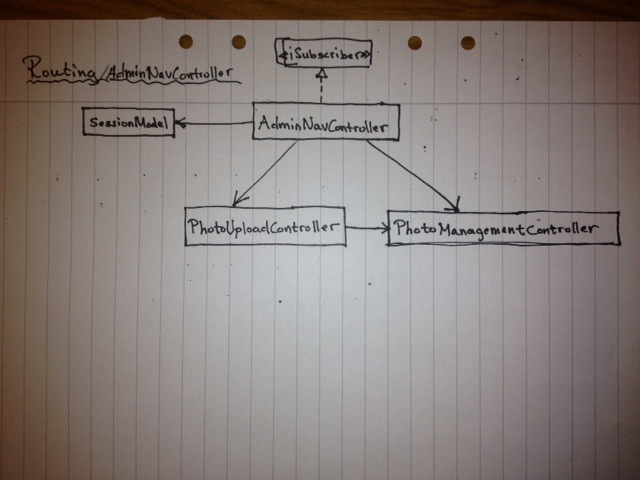 <<iSubscriber>>
Routing/AdminNavController
SessionModel
AdminNavController
PhotoUploadController
PhotoManagementController